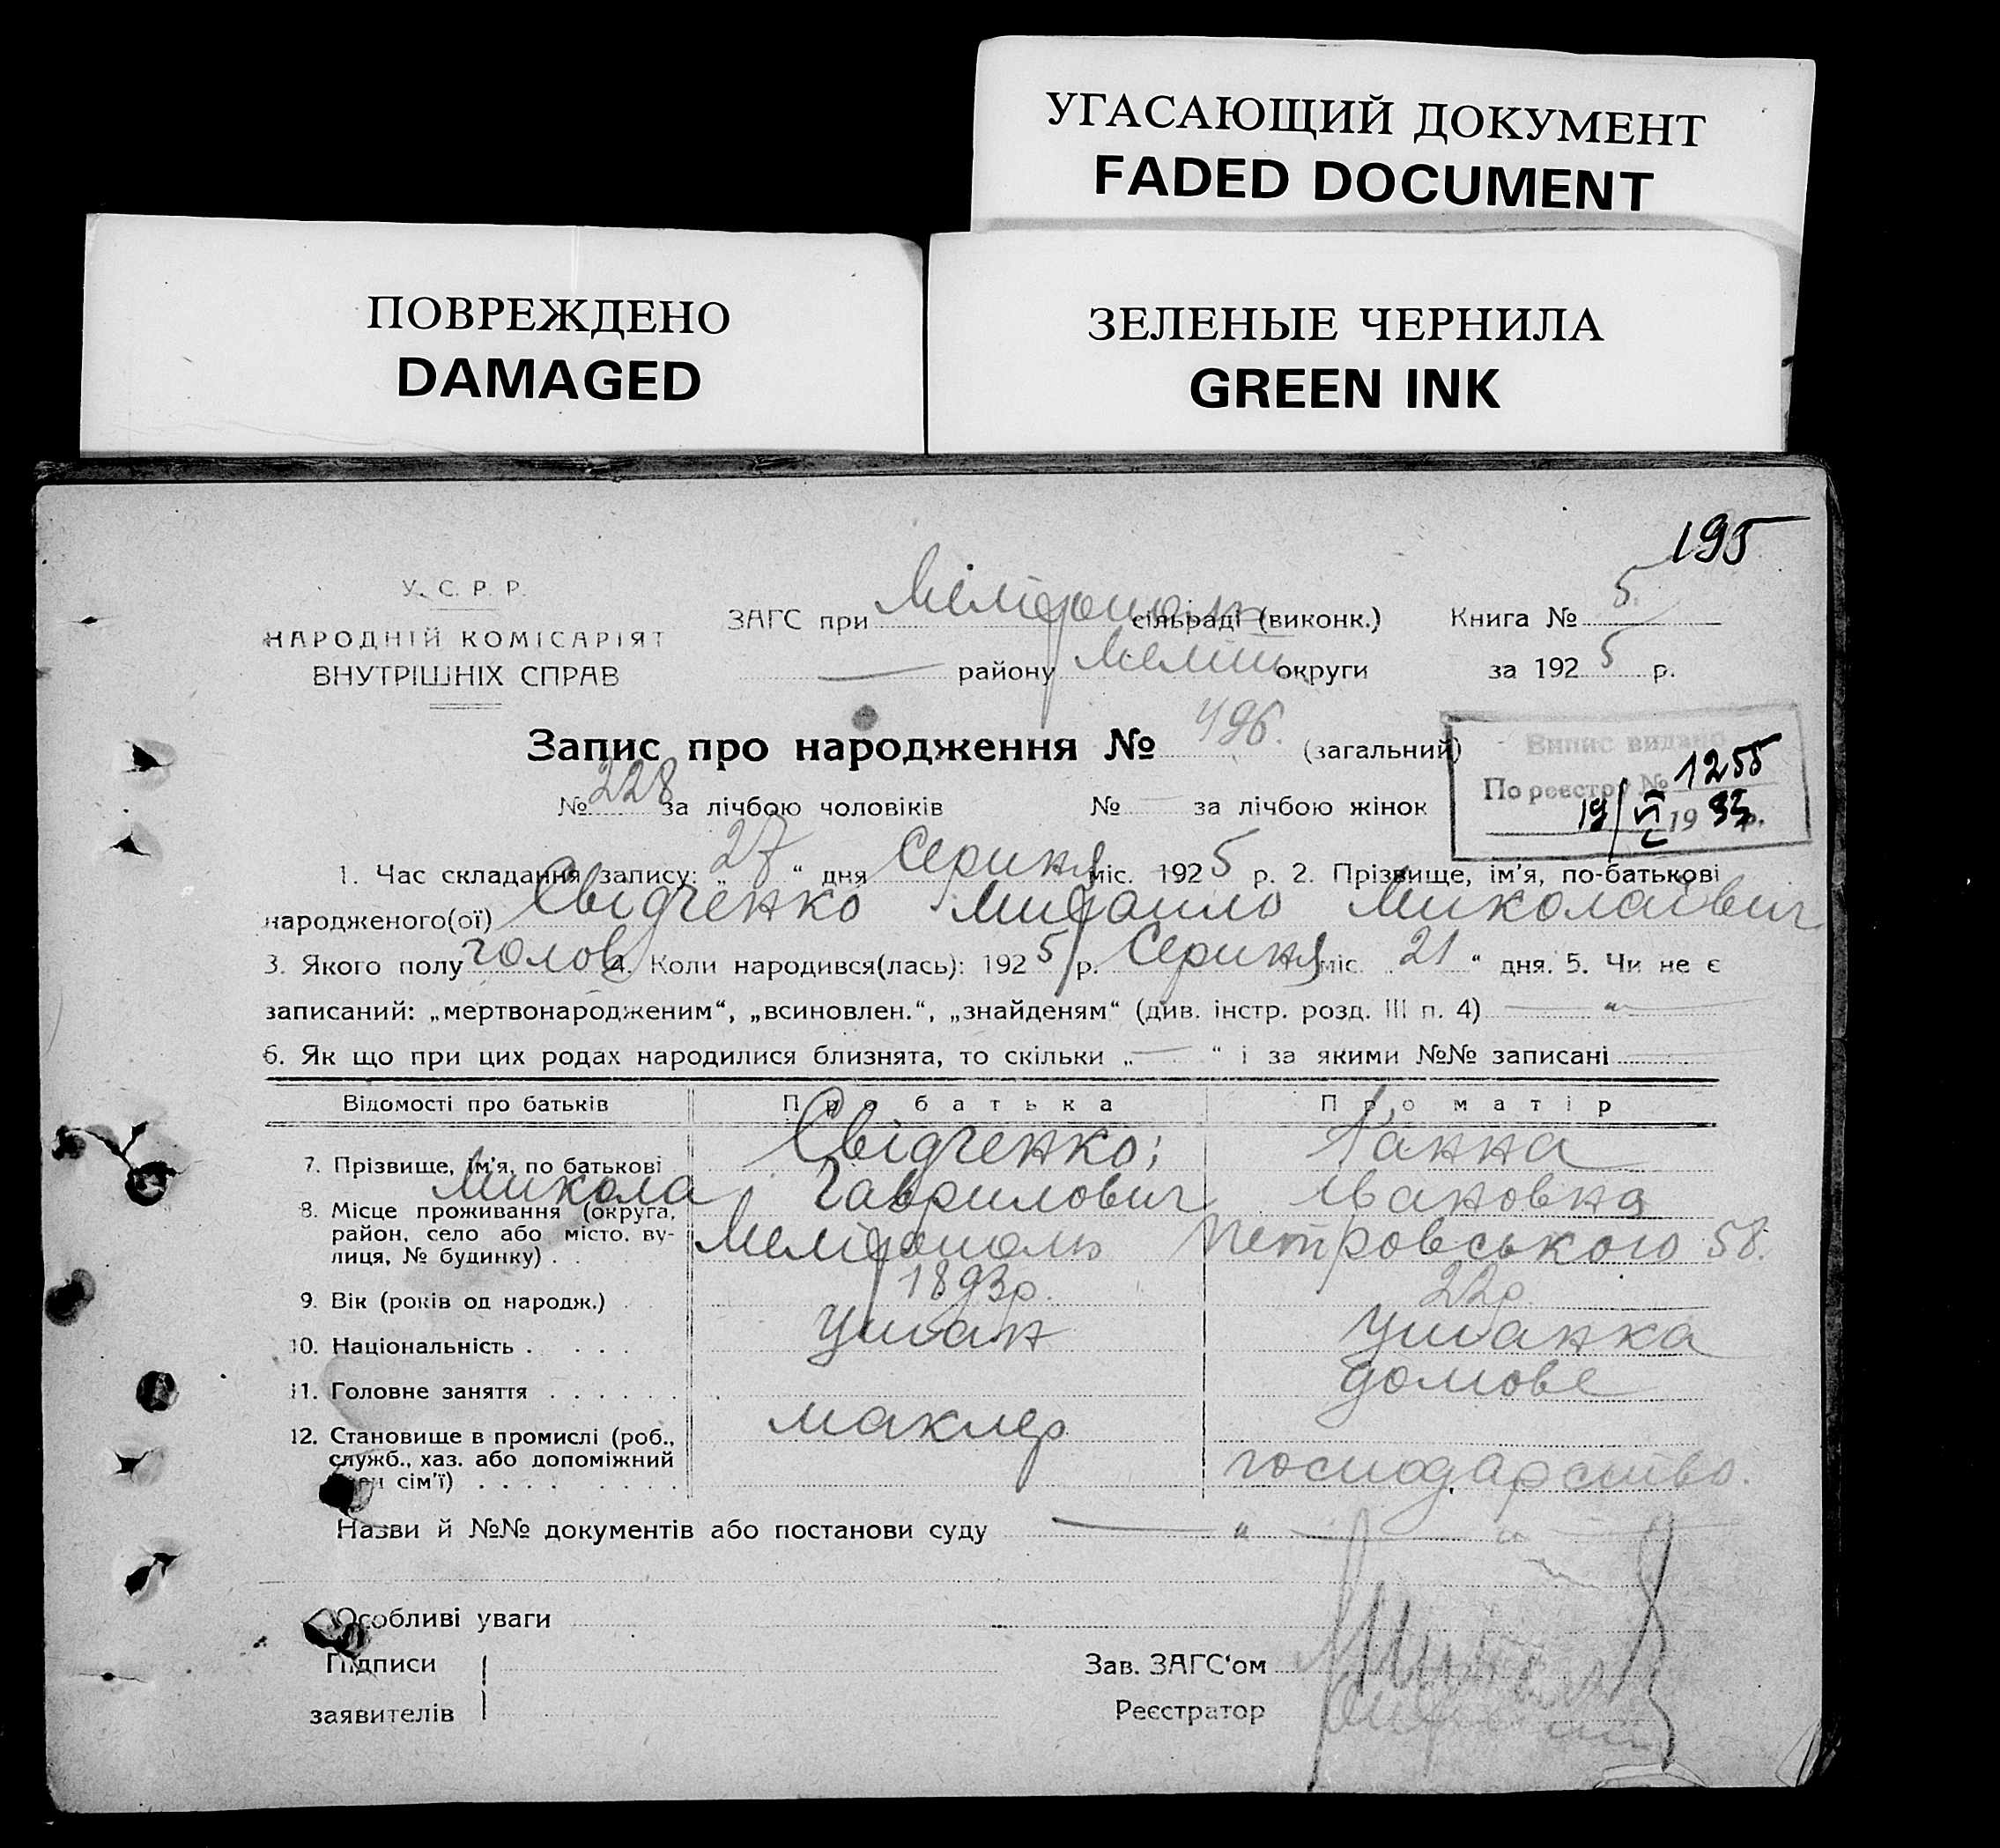 УГАСАЮЩИЙ ДОКУМЕНТ
FADED DOCUMENT
ПОВРЕЖДЕНО
DAMAGED
ЗЕЛЕНЫЕ ЧЕРНИЛА
GREEN INK
195
У. С. Р. Р.
НАРОДНІЙ КОМІСАРІЯТ
ВНУТРІШНІХ СПРАВ
ЗАГС при Мелітополь сільраді (виконк.) Книга № 5.
— району Меліт округи за 1925 р.
Запис про народження № 496. (загальний)
№ 228 за лічбою чоловіків № — за лічбою жінок
Випис видано
По реєстру № 1255
19/VI 1933р.
1. Час складання запису: „27“ дня Серпня міс. 1925 р. 2. Прізвище, ім'я, по-батькові
народженого(ої) Свідченко Михайло Миколаївич
3. Якого полу чолов 4. Коли народився(лась): 1925 р. Серпня міс. „21“ дня. 5. Чи не є
записаний: „мертвонародженим“, „всиновлен.“, „знайденям“ (див. інстр. розд. III п. 4) — „ —
6. Як що при цих родах народилися близнята, то скільки „—“ і за якими №№ записані
Відомості про батьків Про батька Про матір
7. Прізвище, ім'я, по батькові Свідченко; Ганна
Микола Гаврилович Івановна
8. Місце проживання (округа,
район, село або місто, ву-
лиця, № будинку) . . Мелітополь Петровського 58.
9. Вік (років од народж.) . 1893р. 22р.
10. Національність . . . . .
11. Головне заняття . . . . . . домове
12. Становище в промислі (роб., маклер
служб., хаз. або допоміжний господарство.
член сім'ї) . . . . . . . .
Назви й №№ документів або постанови суду — „ — „ —
Особливі уваги
Підписи
заявителів
Зав. ЗАГС'ом
Реєстратор